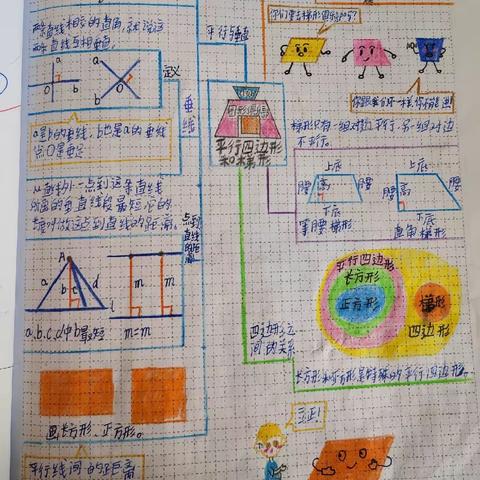 两条直线相交的直角,就说这
两条直线互相垂直。
a
b
O
a
b
O
定义
a是b的垂线,b也是a的垂线
点O是垂足
垂线
从直线外一点到这条直线
所画的垂直线段最短,它的
长度叫做这点到直线的距离。
点到直线的距离
A
a
b
c
d
l
m
m
a、b、c、d中b最短
m=m
画长方形、正方形。
平行线间的距离
平行与垂直
平行四边形
和梯形
你跟我们不一样,你有缺 角
梯形只有一组对边平行,另一组对边
不平行。
上底
腰
高
腰
下底
等腰梯形
上底
腰
高
腰
下底
直角梯形
四边形之
间的关系
平行四边形
长方形
正方形
梯形
四边形
长方形和正方形是特殊的平行四边形。
立正!